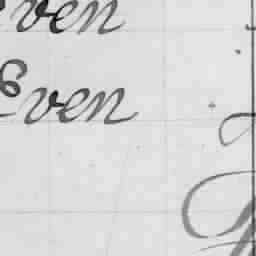 Even
Even